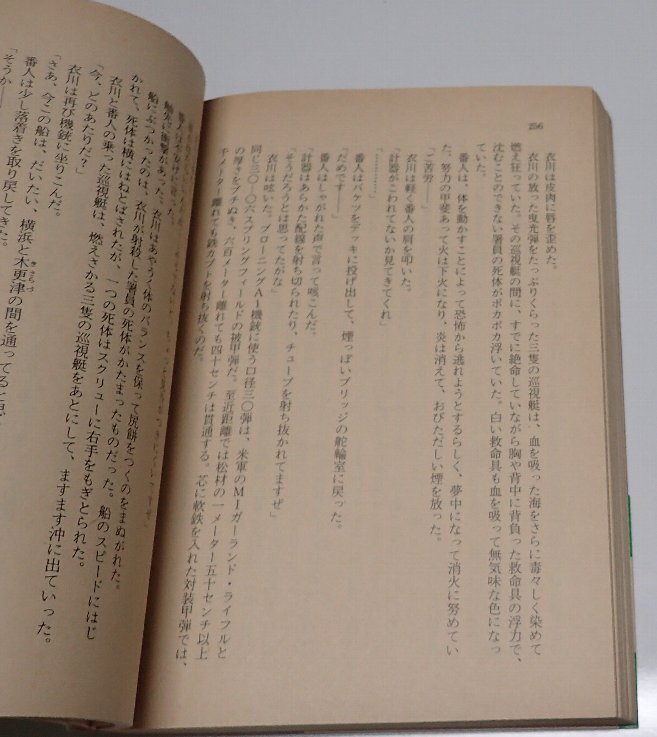 256
衣川は皮肉に唇を歪めた。
衣川の放った曳光弾をたっぷりくらった三隻の巡視艇は、血を吸った海をさらに毒々しく染めて
燃え狂っていた。その巡視艇の間に、すでに絶命していながら胸や背中に背負った救命具の浮力で、
沈むことのできない署員の死体がポカポカ浮いていた。白い救命具も血を吸って無気味な色になっ
ていた。
番人は、体を動かすことによって恐怖から逃れようとするらしく、夢中になって消火に努めてい
た。努力の甲斐あって火は下火になり、炎は消えて、おびただしい煙を放った。
「ご苦労――」
衣川は軽く番人の肩を叩いた。
「計器がこわれてないか見てきてくれ」
「…………」
番人はバケツをデッキに投げ出して、煙っぽいブリッジの舵輪室に戻った。
「だめです――」
番人はしゃがれた声で言って咳こんだ。
「計器はあらかた配線を射ち切られたり、チューブを射ち抜かれてますぜ」
「そうだろうとは思ってたがな」
衣川は呟いた。ブローニングA1機銃に使う口径三〇弾は、米軍のM1ガーランド・ライフルと
同じ三〇-〇六スプリングフィールドの被甲弾だ。至近距離では松材の一メーター五十センチ以上
の厚さをブチぬき、六百メーター離れても四十センチは貫通する。芯に軟鉄を入れた対装甲弾では、
千メーター離れても鉄カブトを射ち抜くのだ。
船先に衝撃があった。衣川はあやうく体のバランスを保って尻餅をつくのをまぬがれた。
船にぶつかったのは、衣川が射殺した署員の死体がかたまったものだった。船のスピードにはじ
かれて、死体は横にはねとばされたが、一つの死体はスクリューに右手をもぎとられた。
衣川と番人の乗った巡視艇は、燃えさかる三隻の巡視艇をあとにして、ますます沖に出ていった。
「今、どのあたりだ?」
衣川は再び機銃に坐りこんだ。
「さあ、今この船は、だいたい、横浜と木更津の間を通ってると
番人は少し落着きを取り戻してきた。
「そうか――